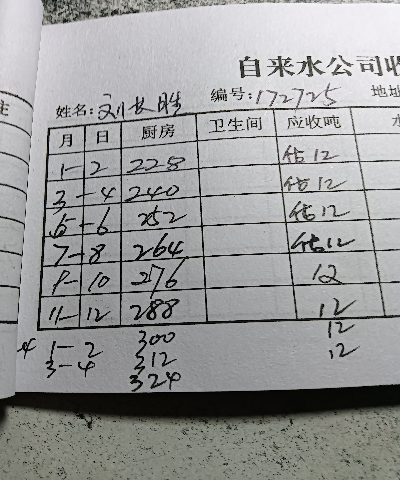 自来水公司收
姓名:刘长胜 编号:172725 地址
注 月 日 厨房 卫生间 应收吨 水
1-2 228 估12
3-4 240 估12
5-6 252 估12
7-8 264 估12
9-10 276 12
11-12 288 12
1-2 300 12
3-4 312 12
324